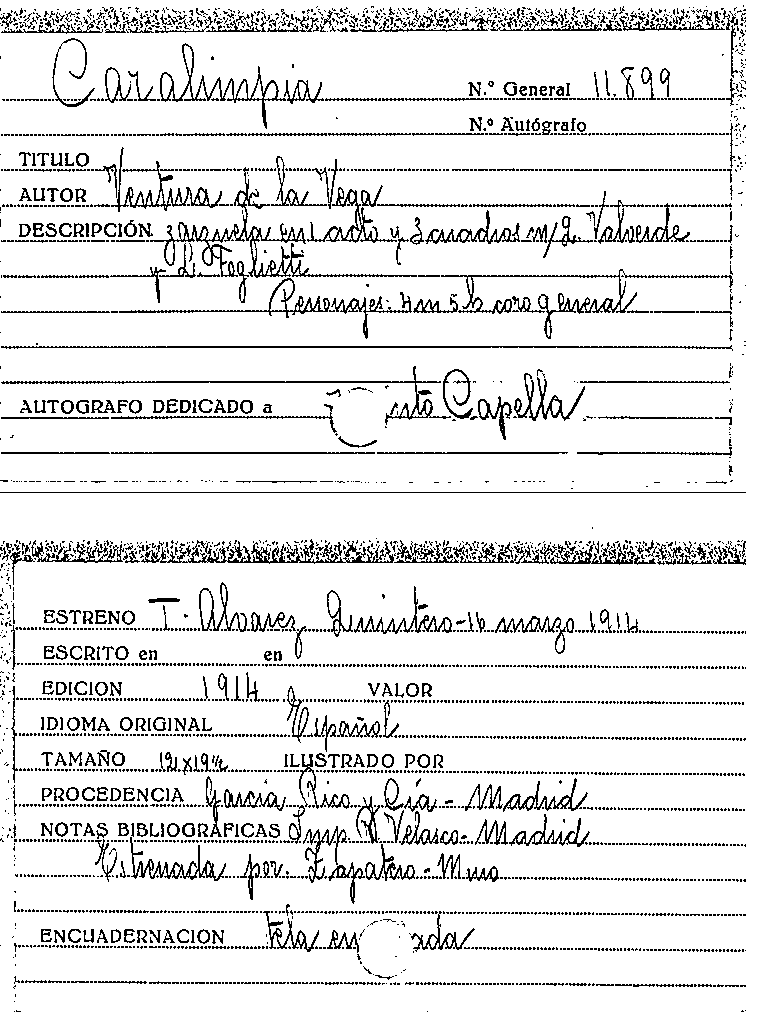 Caralimpia
N.º General 11.899
N.º Autógrafo
TITULO
AUTOR Ventura de la Vega
DESCRIPCIÓN zarzuela en 1 acto y 3 cuadros m/ Q. Valverde
y L. Foglietti
Personajes: 4 m 5 h coro general
AUTOGRAFO DEDICADO a Capella
ESTRENO T. Alvarez Quintero - 16 marzo 1914
ESCRITO en en
EDICION 1914 VALOR
IDIOMA ORIGINAL Español
TAMAÑO ILUSTRADO POR
PROCEDENCIA Garcia Rico y Cía - Madrid
NOTAS BIBLIOGRAFICAS Imp R Velasco - Madrid
Estrenada por. Zapatero - Muro
ENCUADERNACION tela